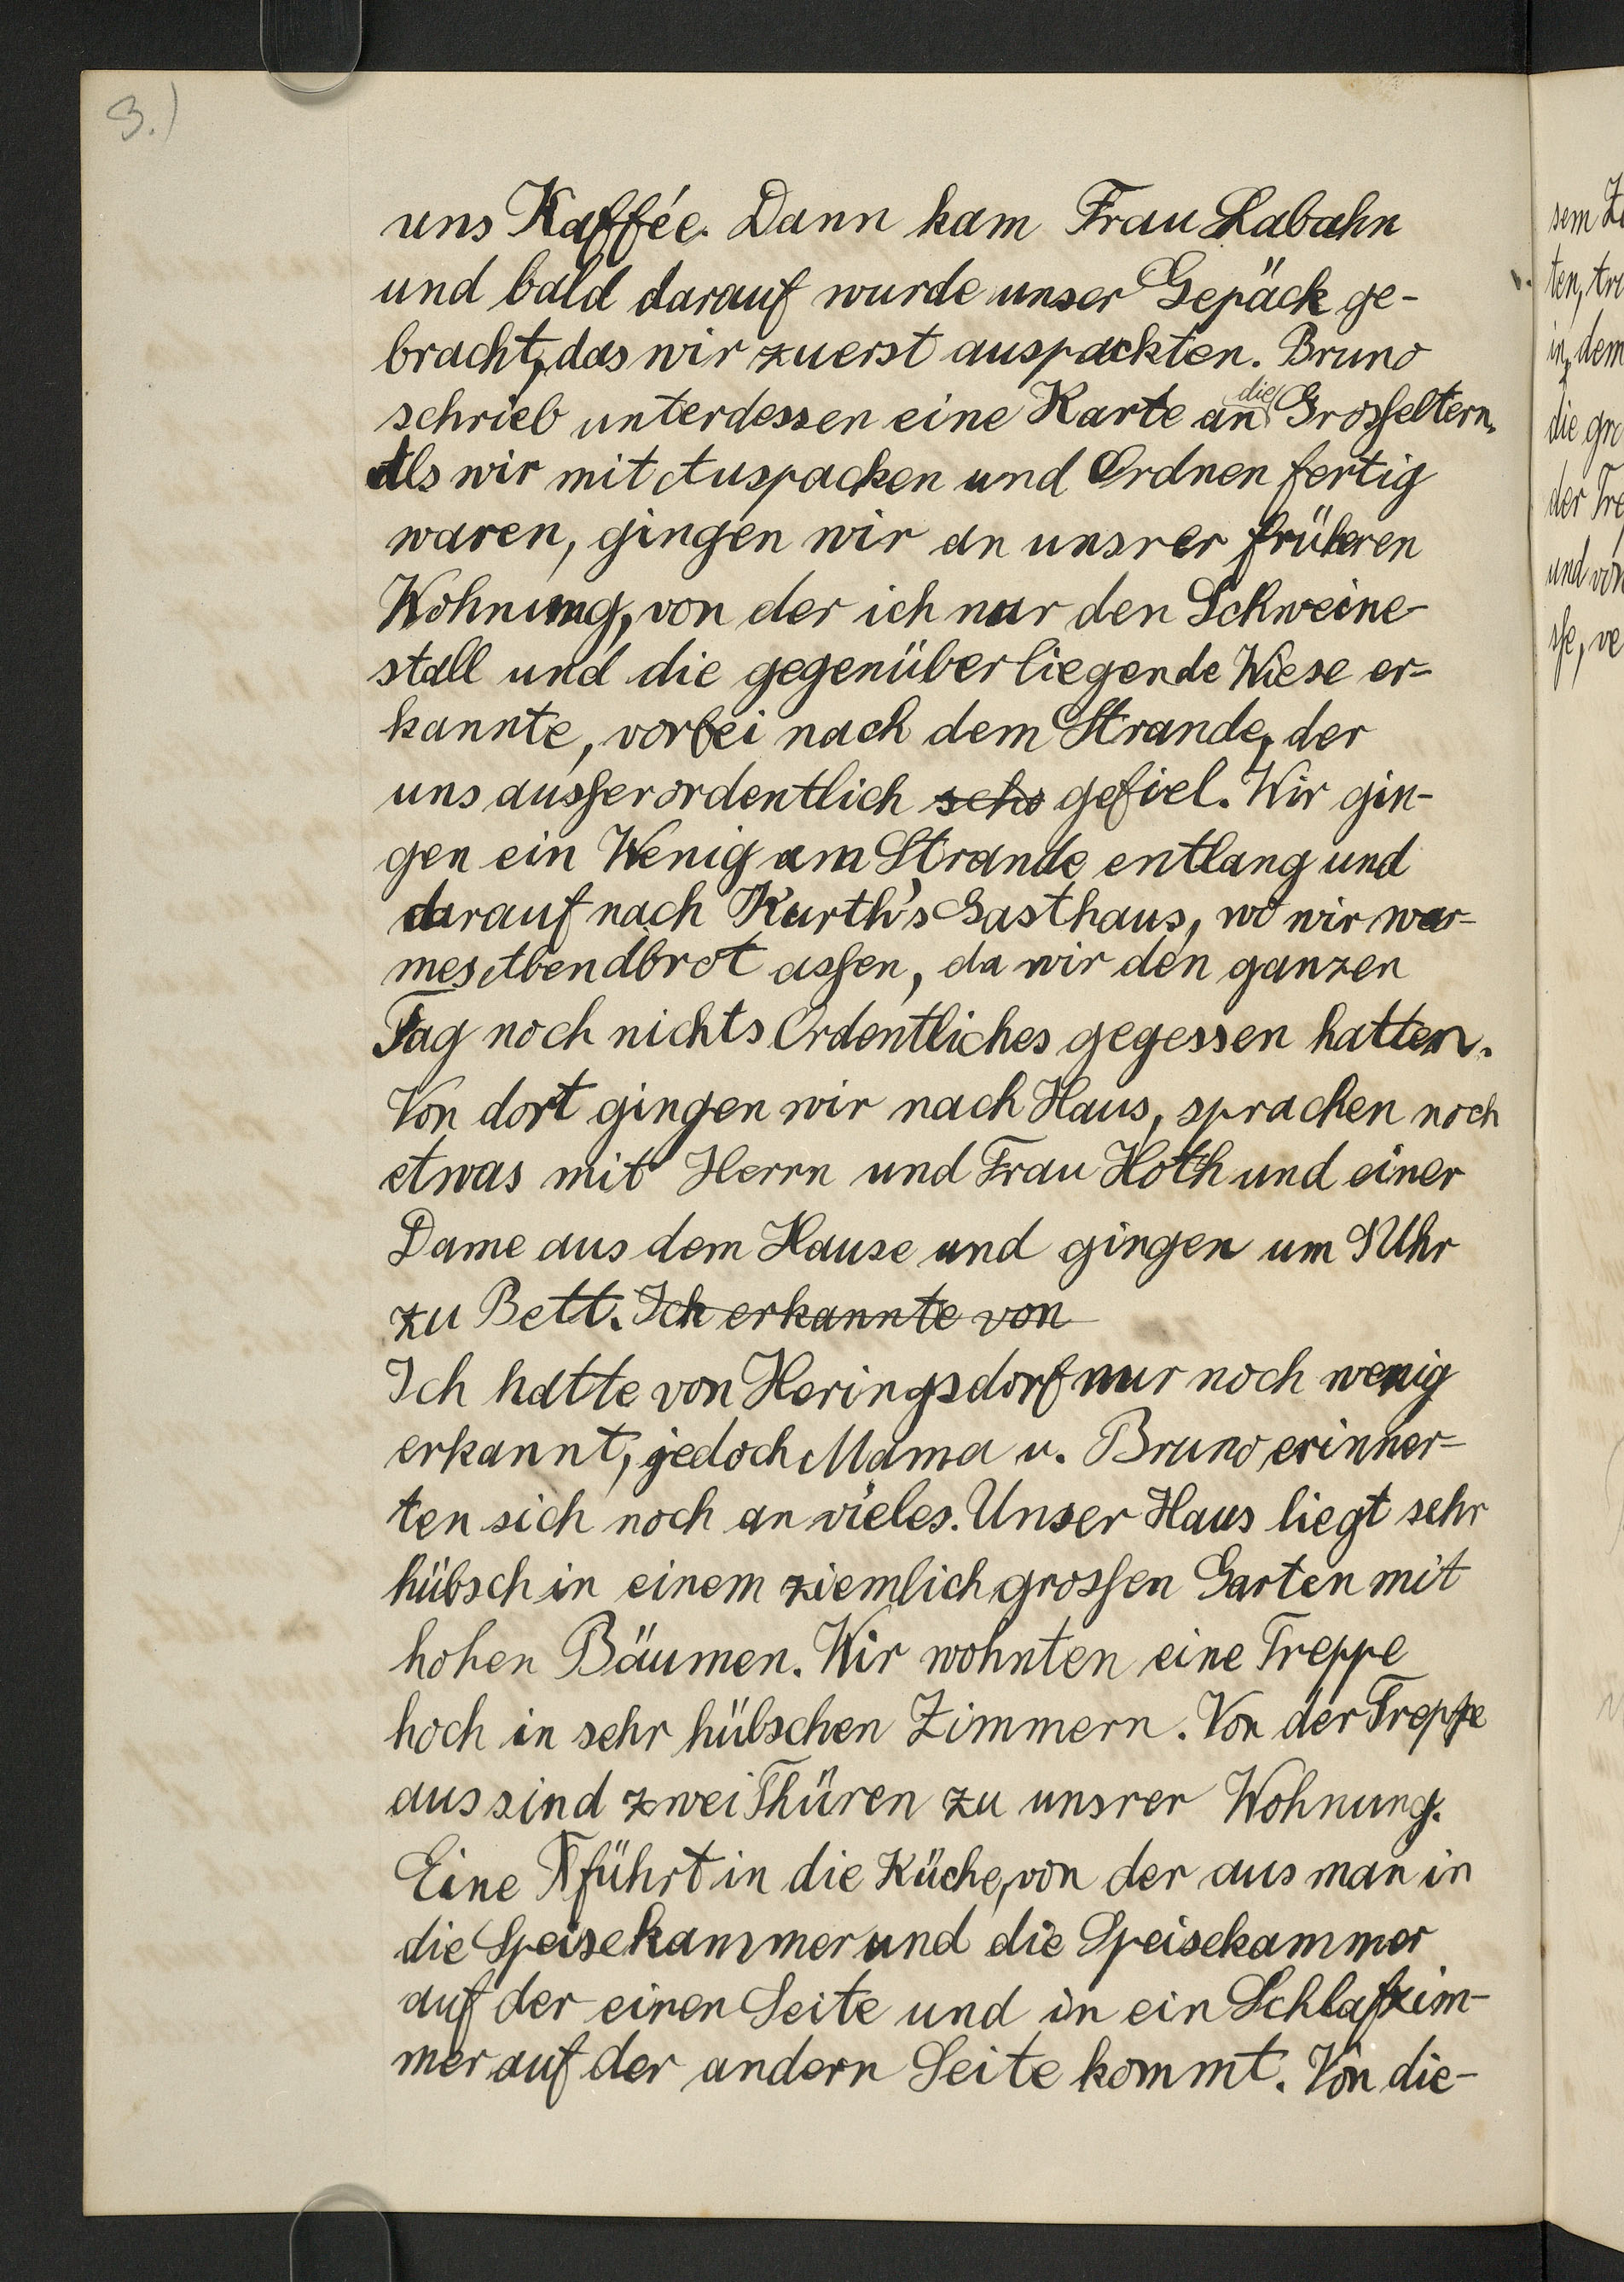 3.)
uns Kaffée. Dann kam Frau Labahn
und bald darauf wurde unser Gepäck ge-
bracht, das wir zuerst auspackten. Bruno
schrieb unterdessen eine Karte an die Grosseltern.
Als wir mit Auspacken und Ordnen fertig
waren, gingen wir an unsrer früheren
Wohnung, von der ich nur den Schweine-
stall und die gegenüberliegende Wiese er-
kannte, vorbei nach dem Strande, der
uns ausserordentlich scho gefiel. Wir gin-
gen ein Wenig am Strande entlang und
darauf nach Kurth's Gasthaus, wo wir war-
mes Abendbrot assen, da wir den ganzen
Tag noch nichts Ordentliches gegessen hatten.
Von dort gingen wir nach Haus, sprachen noch
etwas mit Herrn und Frau Hoth und einer
Dame aus dem Hause und gingen um 9 Uhr
zu Bett. Ich erkannte von
Ich hatte von Heringsdorf nur noch wenig
erkannt, jedoch Mama u. Bruno erinner-
ten sich noch an vieles. Unser Haus liegt sehr
hübsch in einem ziemlich grossen Garten mit
hohen Bäumen. Wir wohnten eine Treppe
hoch in sehr hübschen Zimmern. Von der Treppe
aus sind zwei Thüren zu unsrer Wohnung.
Eine führt in die Küche, von der aus man in
die Speisekammer und die Speisekammer
auf der einen Seite und in ein Schlafzim-
mer auf der andern Seite kommt. Von die-
sem
ten,
in, dem
die
der
und von